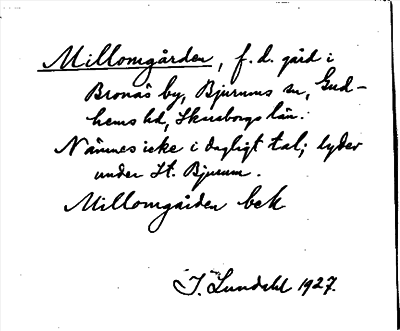 Millomgården, f. d. gård i
Bronäs by, Bjurums sn, Gud-
hems hd, Skaraborgs län.
Nämnes icke i dagligt tal; lyder
under St. Bjurum.
Millomgården bek
I. Lundahl 1927.